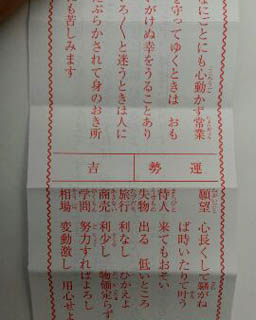 なにごとにも心動かず常業
を守ってゆくときは おも
がけぬ幸をうることあり
ろ〳〵と迷うときは人に
ぶらかされて身のおき所
も苦しみます
運勢
吉
願望 心長くして騒がね
ば時いたりて叶う
待人 来てもおそい
失物 出る 低いところ
旅行 利なし ひかえよ
商売 利少し 物価定らず
学問 努力すればよろし
相場 変動激し 用心せよ